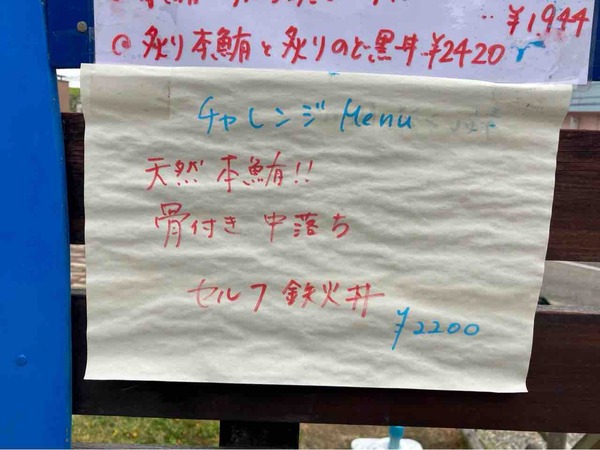 ¥1944
◎炙り本鮪と炙りのど黒丼 ¥2420
チャレンジ Menu
天然 本鮪!!
骨付き 中落ち
セルフ 鉄火丼
¥2200